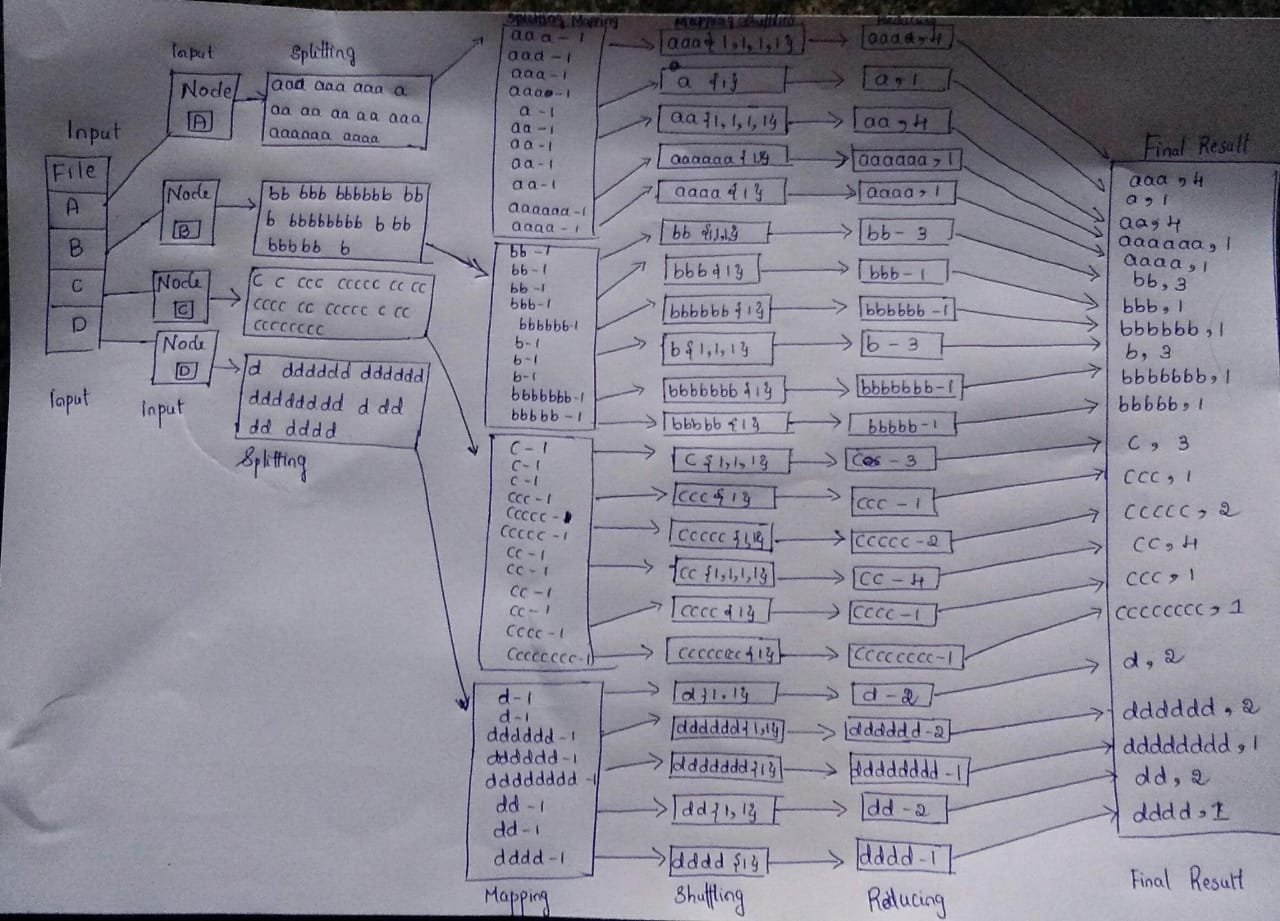 Input
File
A
B
C
D
Input
Input
Node
A
Node
B
Node
C
Node
D
Input
Splitting
aad aaa aaa a
aa aa aa aa aaa
aaaaaa aaaa
bb bbb bbbbbb bb
b bbbbbbbb b bb
bbbbb b
C c ccc ccccc cc cc
cccc cc ccccc c cc
cccccccc
d dddddd dddddd
dddddddd d dd
dd dddd
Splitting
Splitting Mapping
aaa-1
aad-1
aaa-1
aaa-1
a-1
aa-1
aa-1
aa-1
aa-1
aaaaaa-1
aaaa-1
bb-1
bb-1
bb-1
bbb-1
bbbbbb-1
b-1
b-1
b-1
bbbbbbb-1
bbbbb-1
C-1
c-1
c-1
ccc-1
ccccc-1
ccccc-1
cc-1
cc-1
cc-1
cc-1
cccc-1
cccccccc-1
d-1
d-1
dddddd-1
dddddd-1
dddddddd-1
dd-1
dd-1
dddd-1
Mapping
Mapping Shuffling
aaa{1,1,1,1}
a {1}
aa{1,1,1,1}
aaaaaa{1}
aaaa{1}
bb {1,1,1}
bbb{1}
bbbbbb{1}
b{1,1,1}
bbbbbbb{1}
bbbbb{1}
C{1,1,1}
ccc{1}
ccccc{1,1}
cc{1,1,1,1}
cccc{1}
ccccccc{1}
d{1,1}
dddddd{1,1}
ddddddd{1}
dd{1,1}
dddd{1}
Shuffling
Reducing
aaaa,4
a,1
aa,4
aaaaaa,1
aaaa,1
bb-3
bbb-1
bbbbbb-1
b-3
bbbbbbb-1
bbbbb-1
-3
ccc-1
ccccc-2
CC-4
cccc-1
cccccccc-1
d-2
dddddd-2
dddddddd-1
dd-2
dddd-1
Reducing
Final Result
aaa,4
a,1
aa,4
aaaaaa,1
aaaa,1
bb,3
bbb,1
bbbbbb,1
b,3
bbbbbbb,1
bbbbb,1
C, 3
ccc,1
ccccc,2
cc,4
ccc,1
cccccccc,1
d,2
dddddd,2
dddddddd,1
dd,2
dddd,1
Final Result